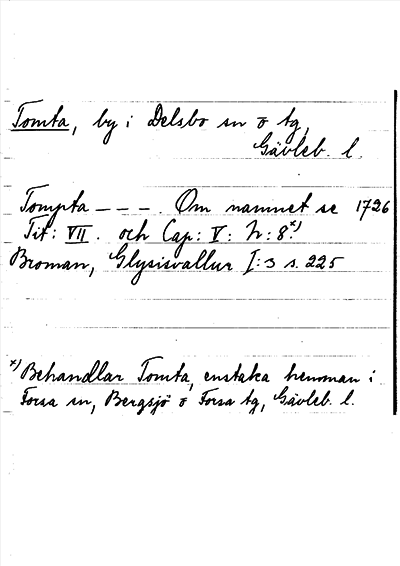 Tomta, by i Delsbo sn o tg,
Gävleb. l.
Tompta – – –. Om namnet se 1726
Tit: VII. och Cap: V: N: 8 x)
Broman, Glysisvallur I:3 s. 225
x) Behandlar Tomta, enstaka hemman i
Forsa sn, Bergsjö o Forsa tg, Gävleb. l.